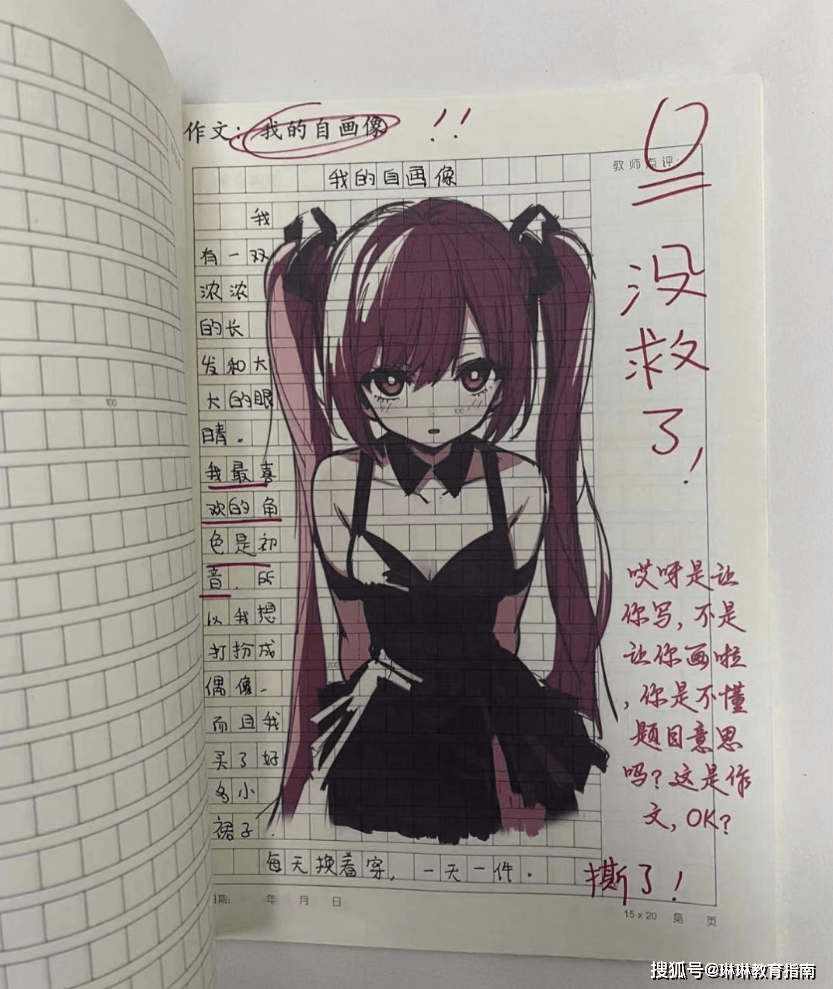 作文：我的自画像 !!
0
教师点评：
我的自画像
我
有一双
浓浓
的长
发和大
大的眼
睛。
我最喜
欢的角
色是初
音.所
以我想
打扮成
偶像.
而且我
买了好
多小
裙子.
每天换着穿,一天一件.
没
救
了!
哎呀是让
你写,不是
让你画啦
,你是不懂
题目意思
吗?这是作
文,OK?
撕了!
100
100
200
日期: 年 月 日
15×20 第 页
搜狐号@琳琳教育指南